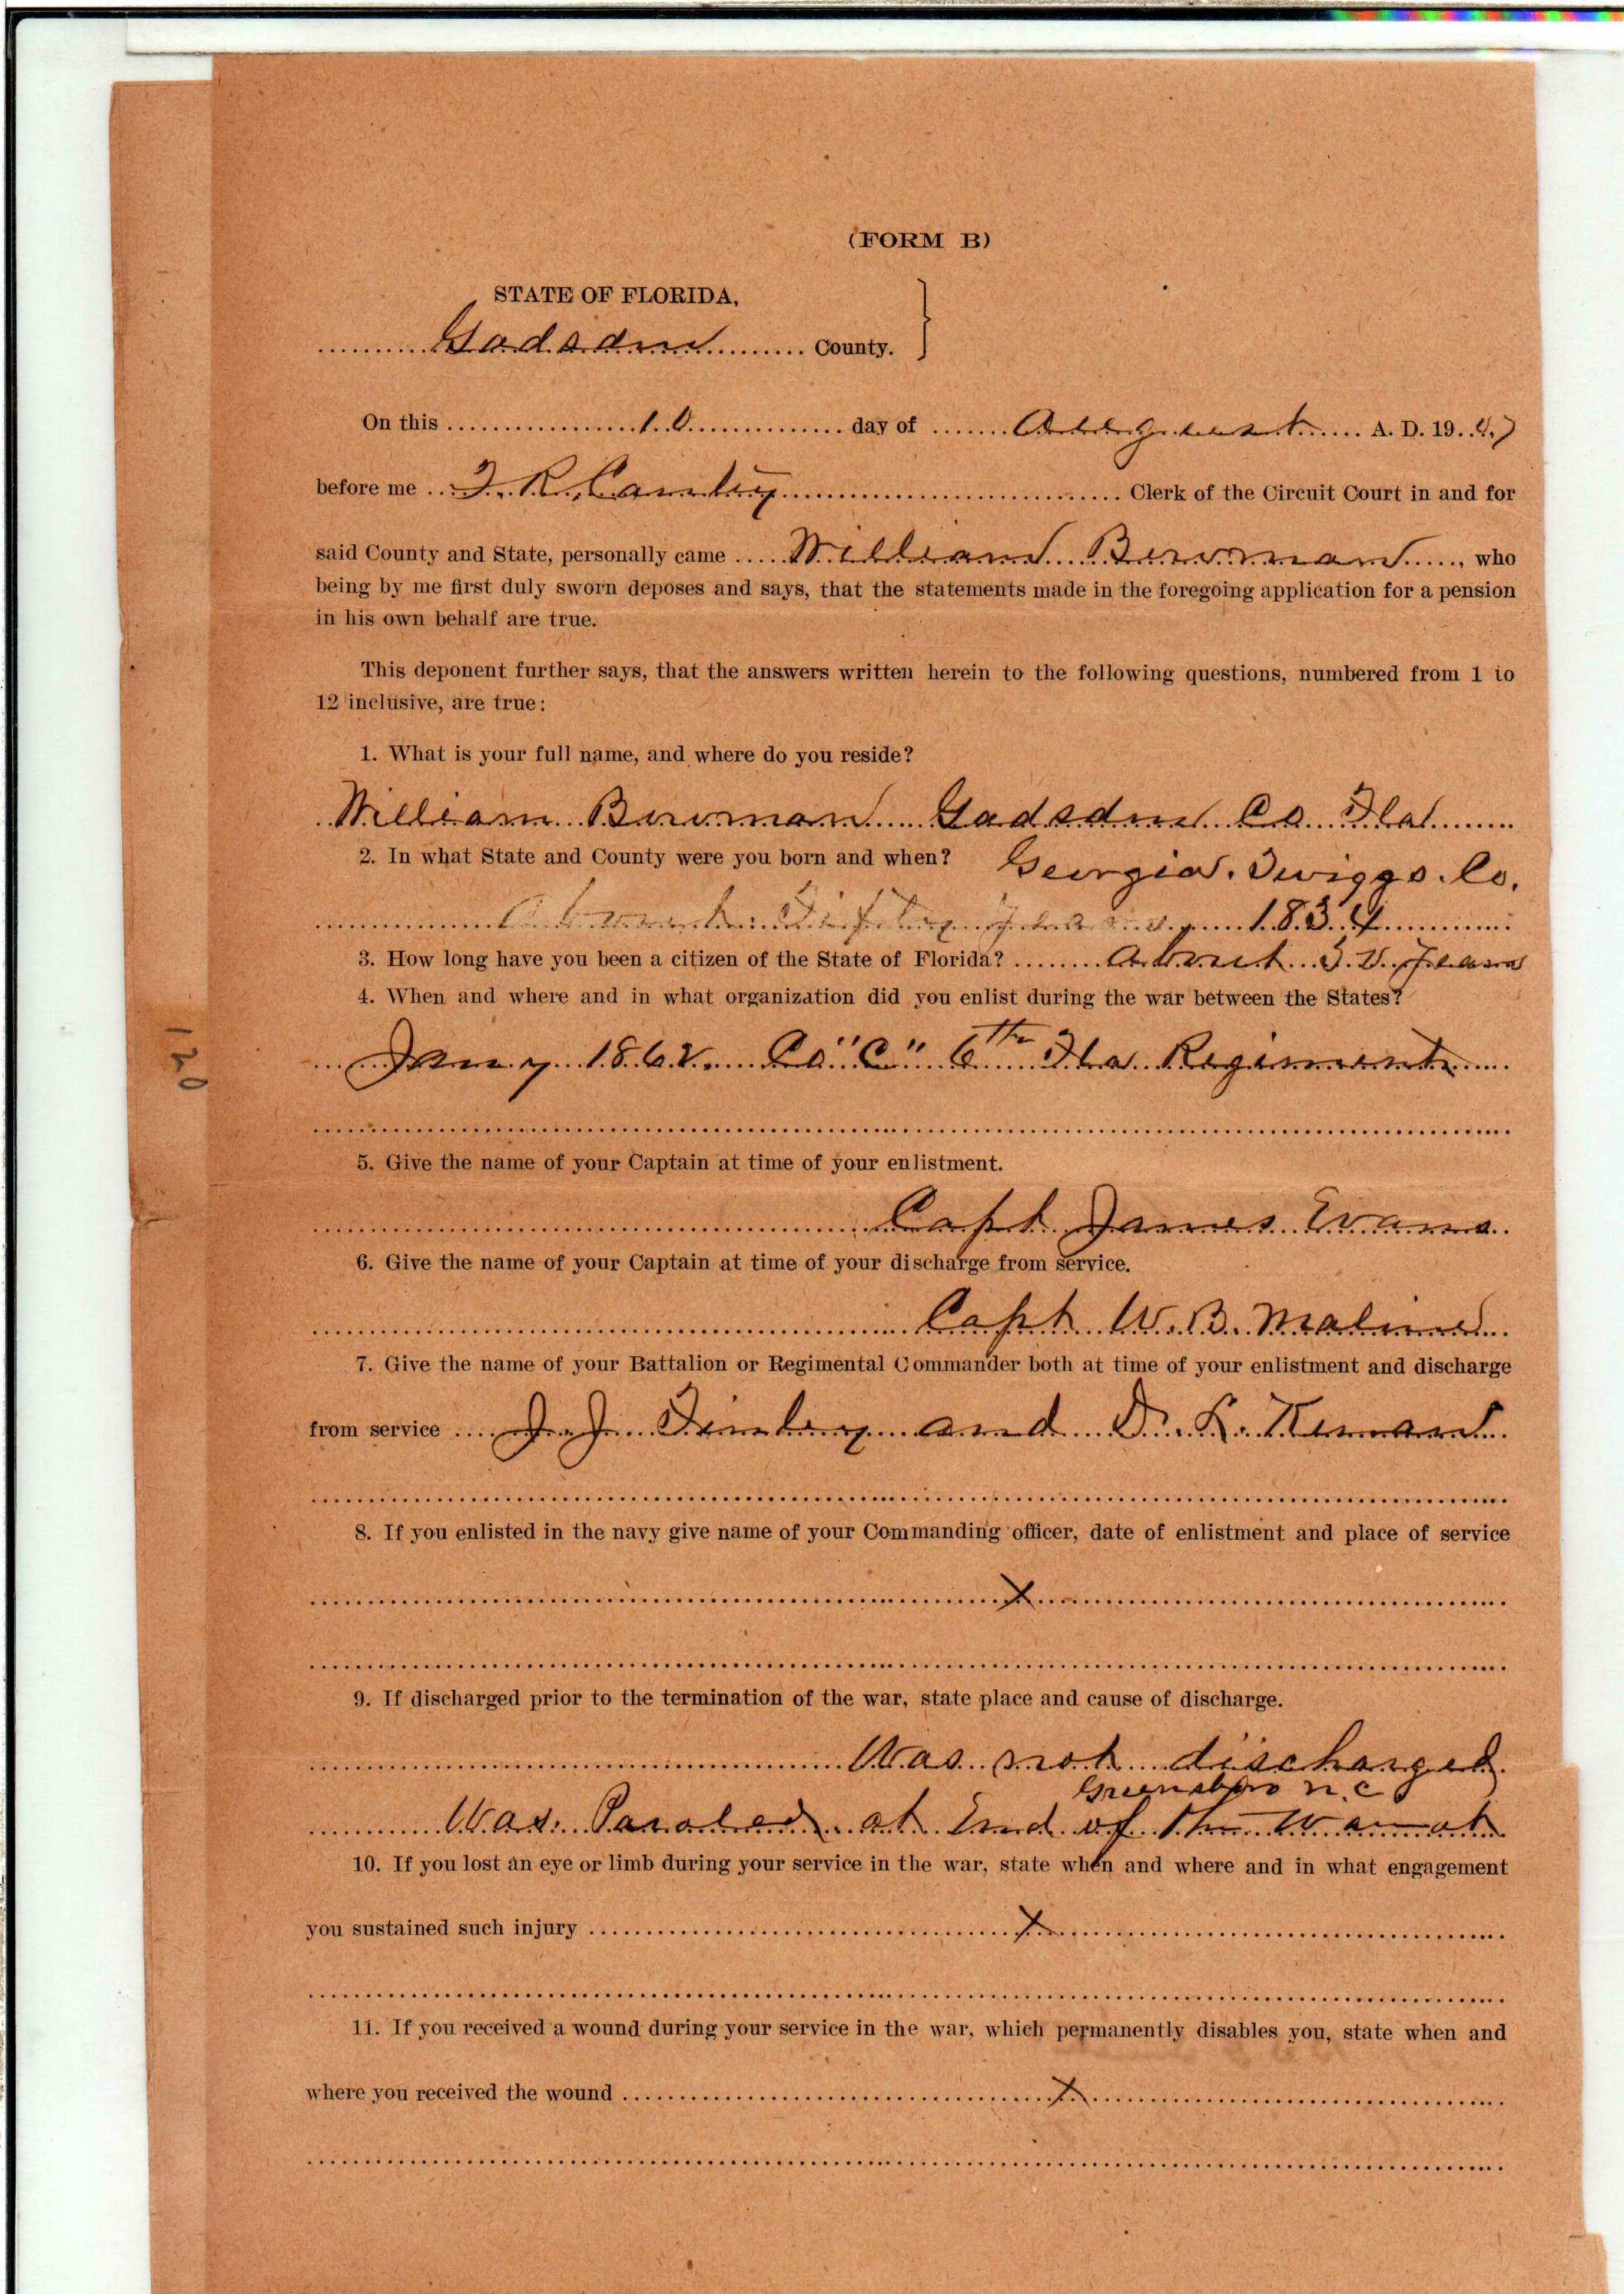 (FORM B)
STATE OF FLORIDA,
Gadsden County.
On this 10 day of August A. D. 190
before me Clerk of the Circuit Court in and for
said County and State, personally came William Bowman, who
being by me first duly sworn deposes and says, that the statements made in the foregoing application for a pension
in his own behalf are true.
This deponent further says, that the answers written herein to the following questions, numbered from 1 to
12 inclusive, are true:
1. What is your full name, and where do you reside?
William Bowman Gadsden Co Fla
2. In what State and County were you born and when? Georgia. Twiggs. Co.
About Fifty Years, 1834
3. How long have you been a citizen of the State of Florida? About 50 years
4. When and where and in what organization did you enlist during the war between the States?
Jany 1862 Co "C" 6th Fla Regiment
5. Give the name of your Captain at time of your enlistment.
Capt James Evans
6. Give the name of your Captain at time of your discharge from service.
Capt W. B. Malone
7. Give the name of your Battalion or Regimental Commander both at time of your enlistment and discharge
from service J. J. Finley and D. L. Kenan
8. If you enlisted in the navy give name of your Commanding officer, date of enlistment and place of service
X
9. If discharged prior to the termination of the war, state place and cause of discharge.
Was not discharged
Greensboro N. C
Was Paroled at End of the War at
10. If you lost an eye or limb during your service in the war, state when and where and in what engagement
you sustained such injury X
11. If you received a wound during your service in the war, which permanently disables you, state when and
where you received the wound X
120